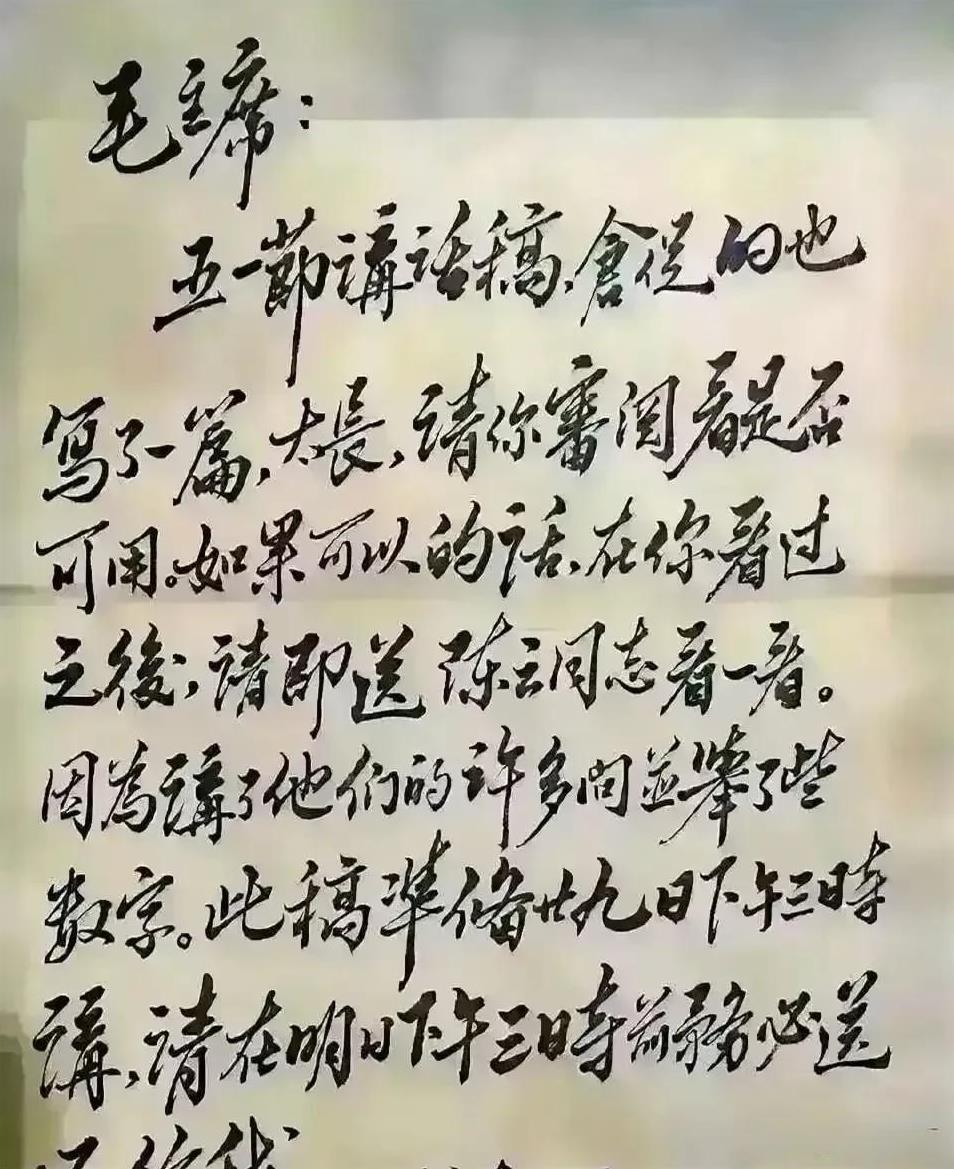 毛主席：
五一節講話稿、倉促的也
寫了一篇，太長，請你審閱看是否
可用。如果可以的話、在你看过
之後，請即送陈云同志看一看。
因為講了他們的許多问並舉了些
数字。此稿準備廿九日下午三时
講，請在明日下午三时前務必送